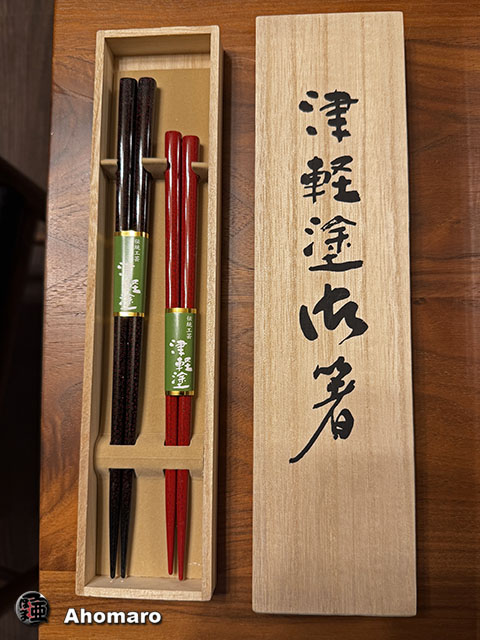 伝統工芸
津軽塗
伝統工芸
津軽塗
津軽塗御箸
Ahomaro